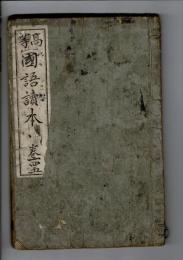 高等
國語讀本
卷四